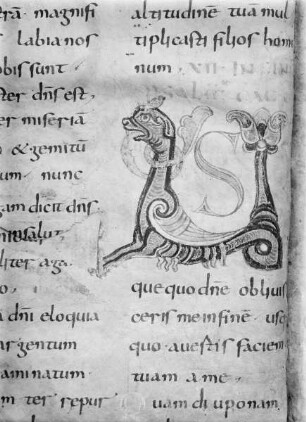 trã magnifi
labia nos
obis sunt
ter dñs est
er miseriã
& gemitũ
um nunc
gam dicit dñs
liter aga
o,
a dñi eloquia
argentum
aminatum
m ter repur
altitudinẽ tuã mul
tiplicasti filios hom
num
US
quequo dñe obliuis
ceris me in finẽ usq
quo auertis faciem
tuam a me
uam diu ponam